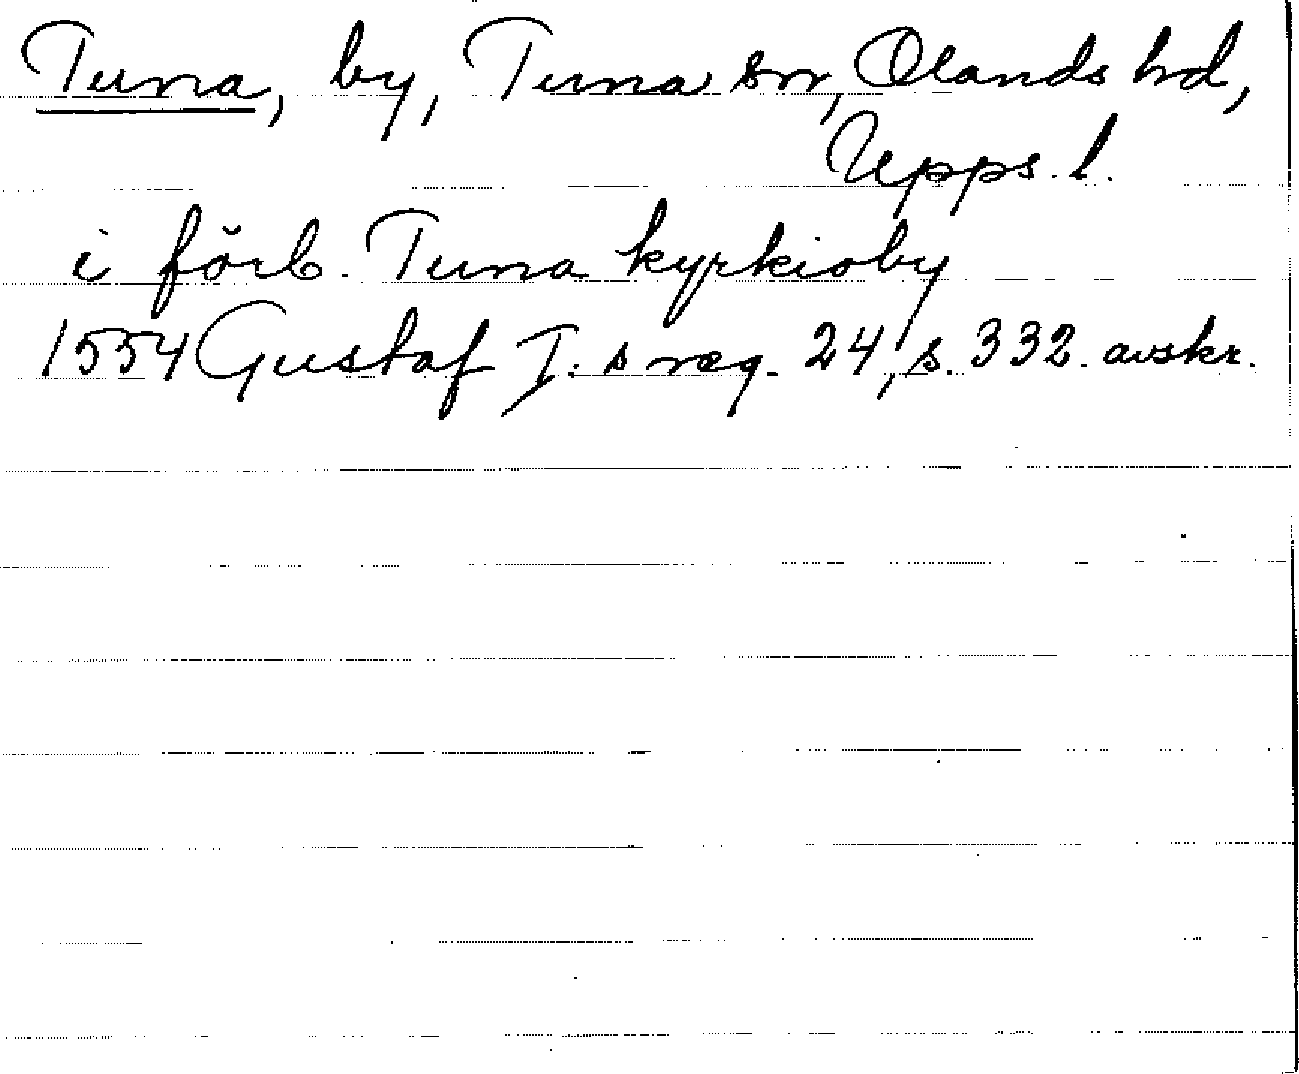 Tuna, by, Tuna sn, Olands hd,
Upps. l.
i förb. Tuna kyrkioby
1554 Gustaf I:s reg. 24, s. 332. avskr.